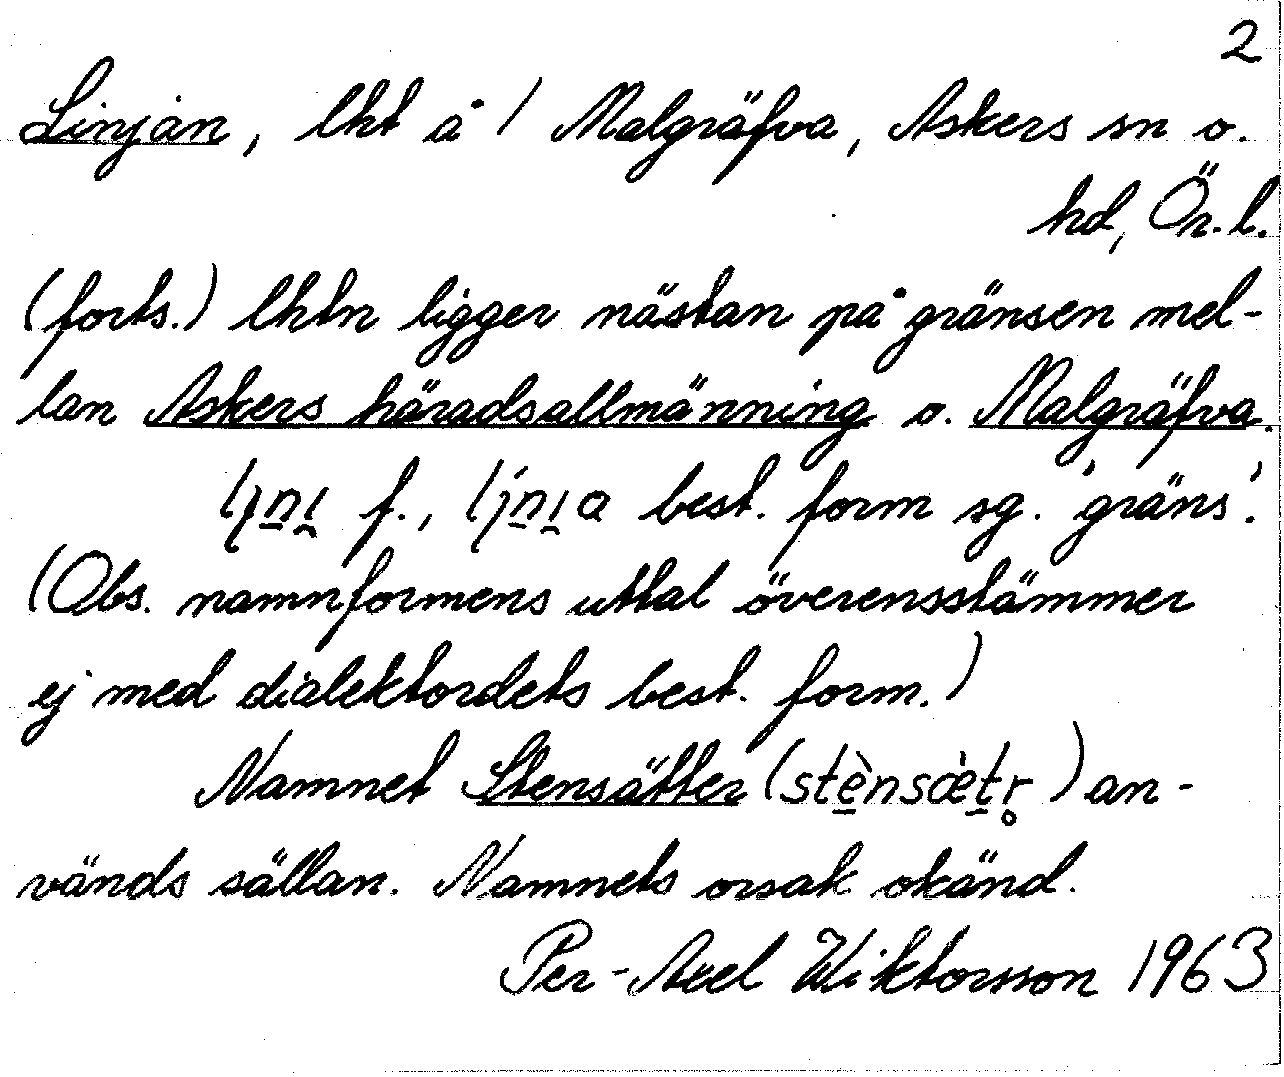 2
Linjan, lht å 1 Malgräfva, Askers sn o.
hd, Ör. l.
(forts.) lhtn ligger nästan på gränsen mel-
lan Askers häradsallmänning o. Malgräfva.
f., best. form sg. 'gräns'.
(Obs. namnformens uttal överensstämmer
ej med dialektordets best. form.)
Namnet Stensätter (stènsæ̀tr̥) an-
vänds sällan. Namnets orsak okänd.
Per-Axel Wiktorsson 1963